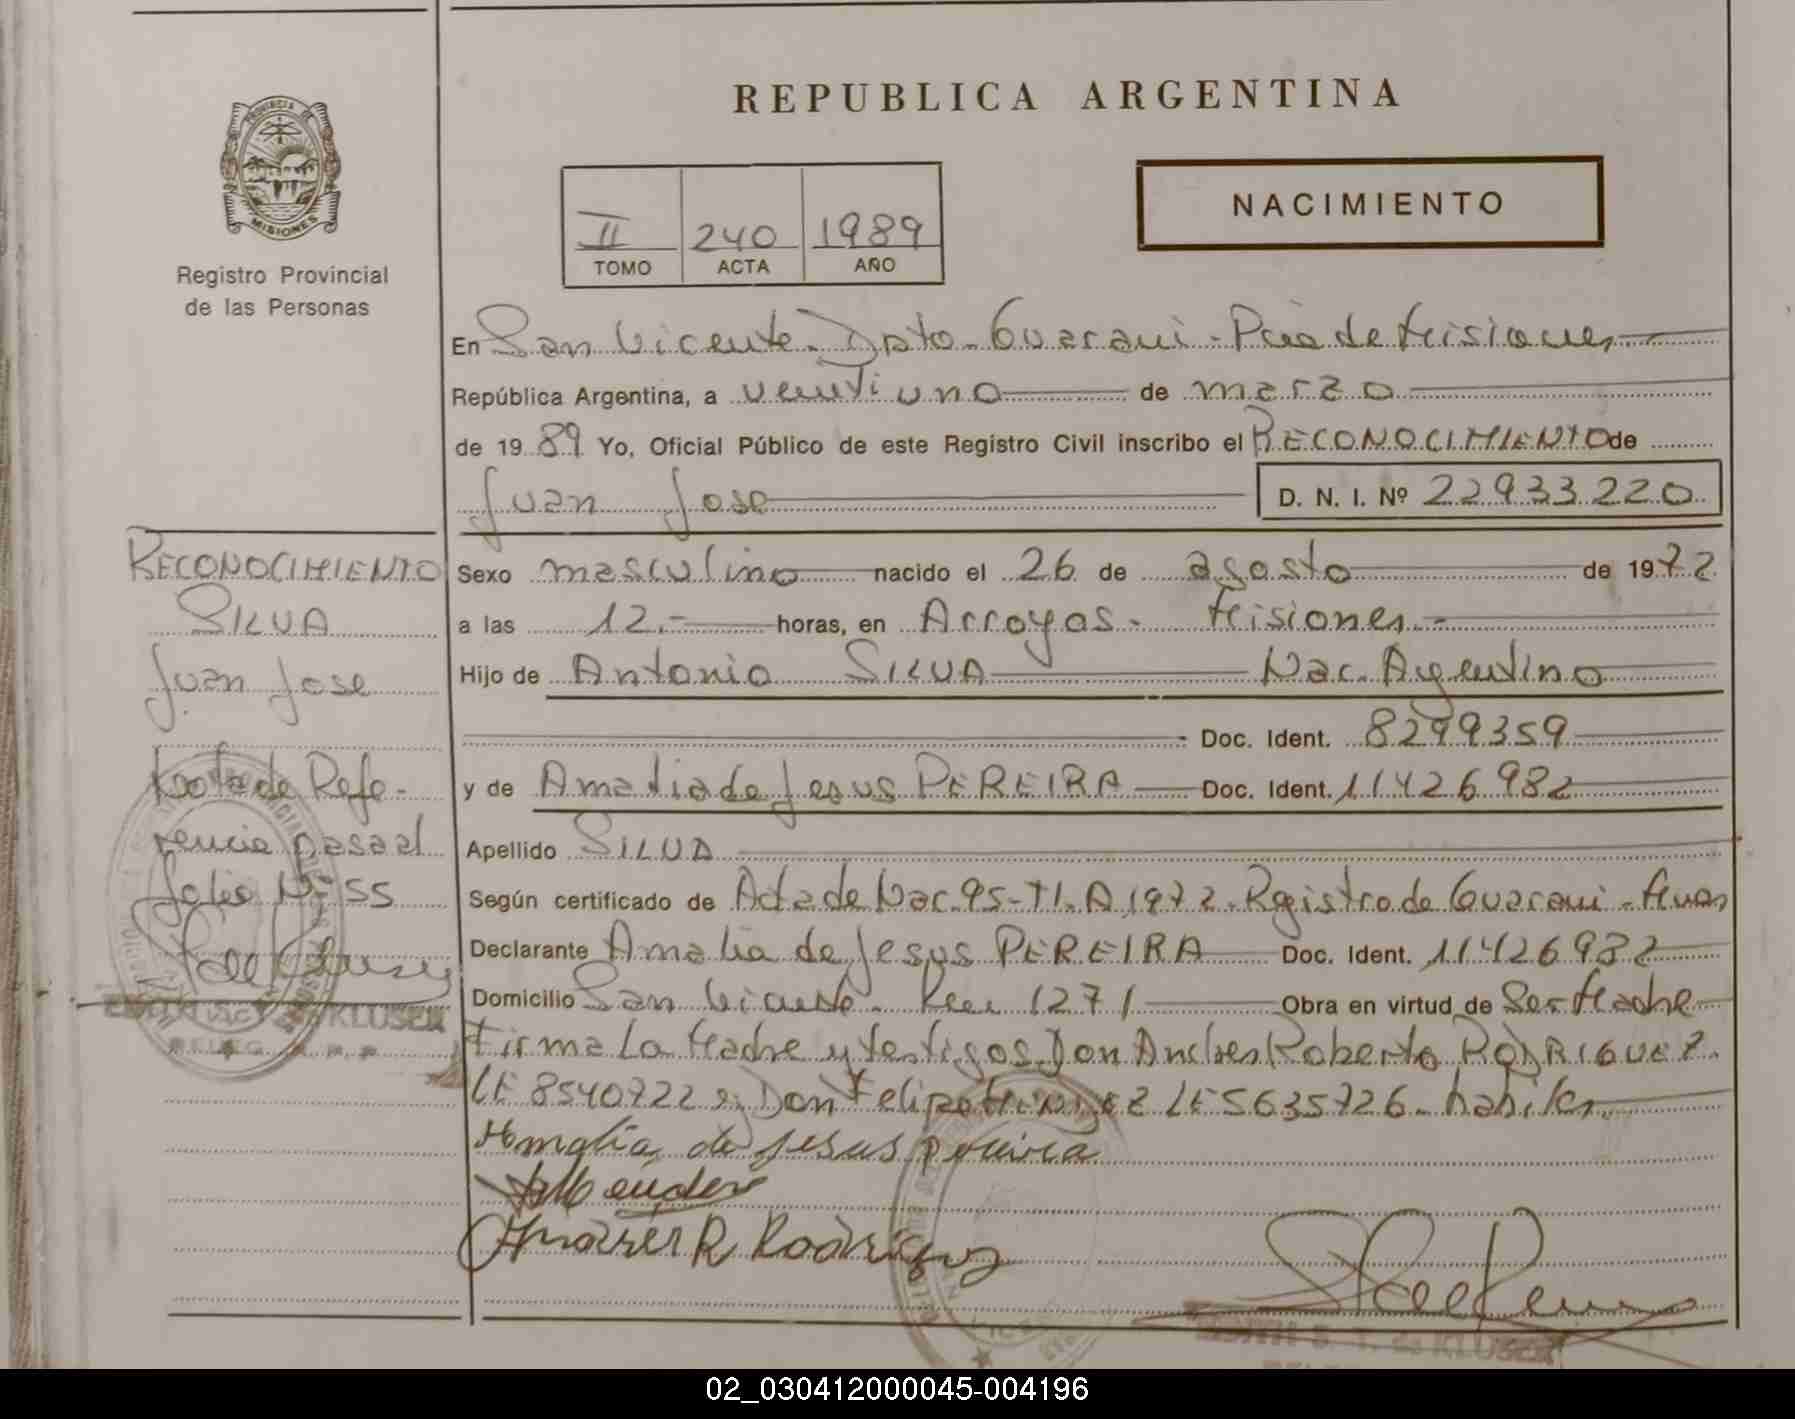 REPUBLICA ARGENTINA
PROVINCIA DE
MISIONES
Registro Provincial
de las Personas
II 240 1989
TOMO ACTA AÑO
NACIMIENTO
En San Vicente - Dpto - Guarani - Pcia de Misiones
República Argentina, a veintiuno de marzo
de 1989 Yo, Oficial Público de este Registro Civil inscribo el RECONOCIMIENTO de
Juan Jose D. N. I. Nº 22933220
Sexo masculino nacido el 26 de agosto de 1972
a las 12.- horas, en Arroyos - Misiones.-
Hijo de Antonio SILVA Nac. Argentino
Doc. Ident. 8299359
y de Amalia de Jesus PEREIRA Doc. Ident. 11426982
Apellido SILVA
Según certificado de Acta de Nac. 95 - T I. A 1972. Registro de Guarani -
Declarante Amalia de Jesus PEREIRA Doc. Ident. 11426982
Domicilio San Vicente - 1271 Obra en virtud de Ser Madre
Firma La Madre y testigos Don Andres Roberto RODRIGUEZ.
LE 8540722 y Don Felipe MENDEZ LE 5635726 - habiles.
Amalia de Jesus pereira
Mendez
Andres R Rodriguez
RECONOCIMIENTO
SILVA
Juan Jose
Nota de Refe-
rencia pasa al
folio Nº 55
KLUSER
S. T. de KLUSER
02_030412000045-004196